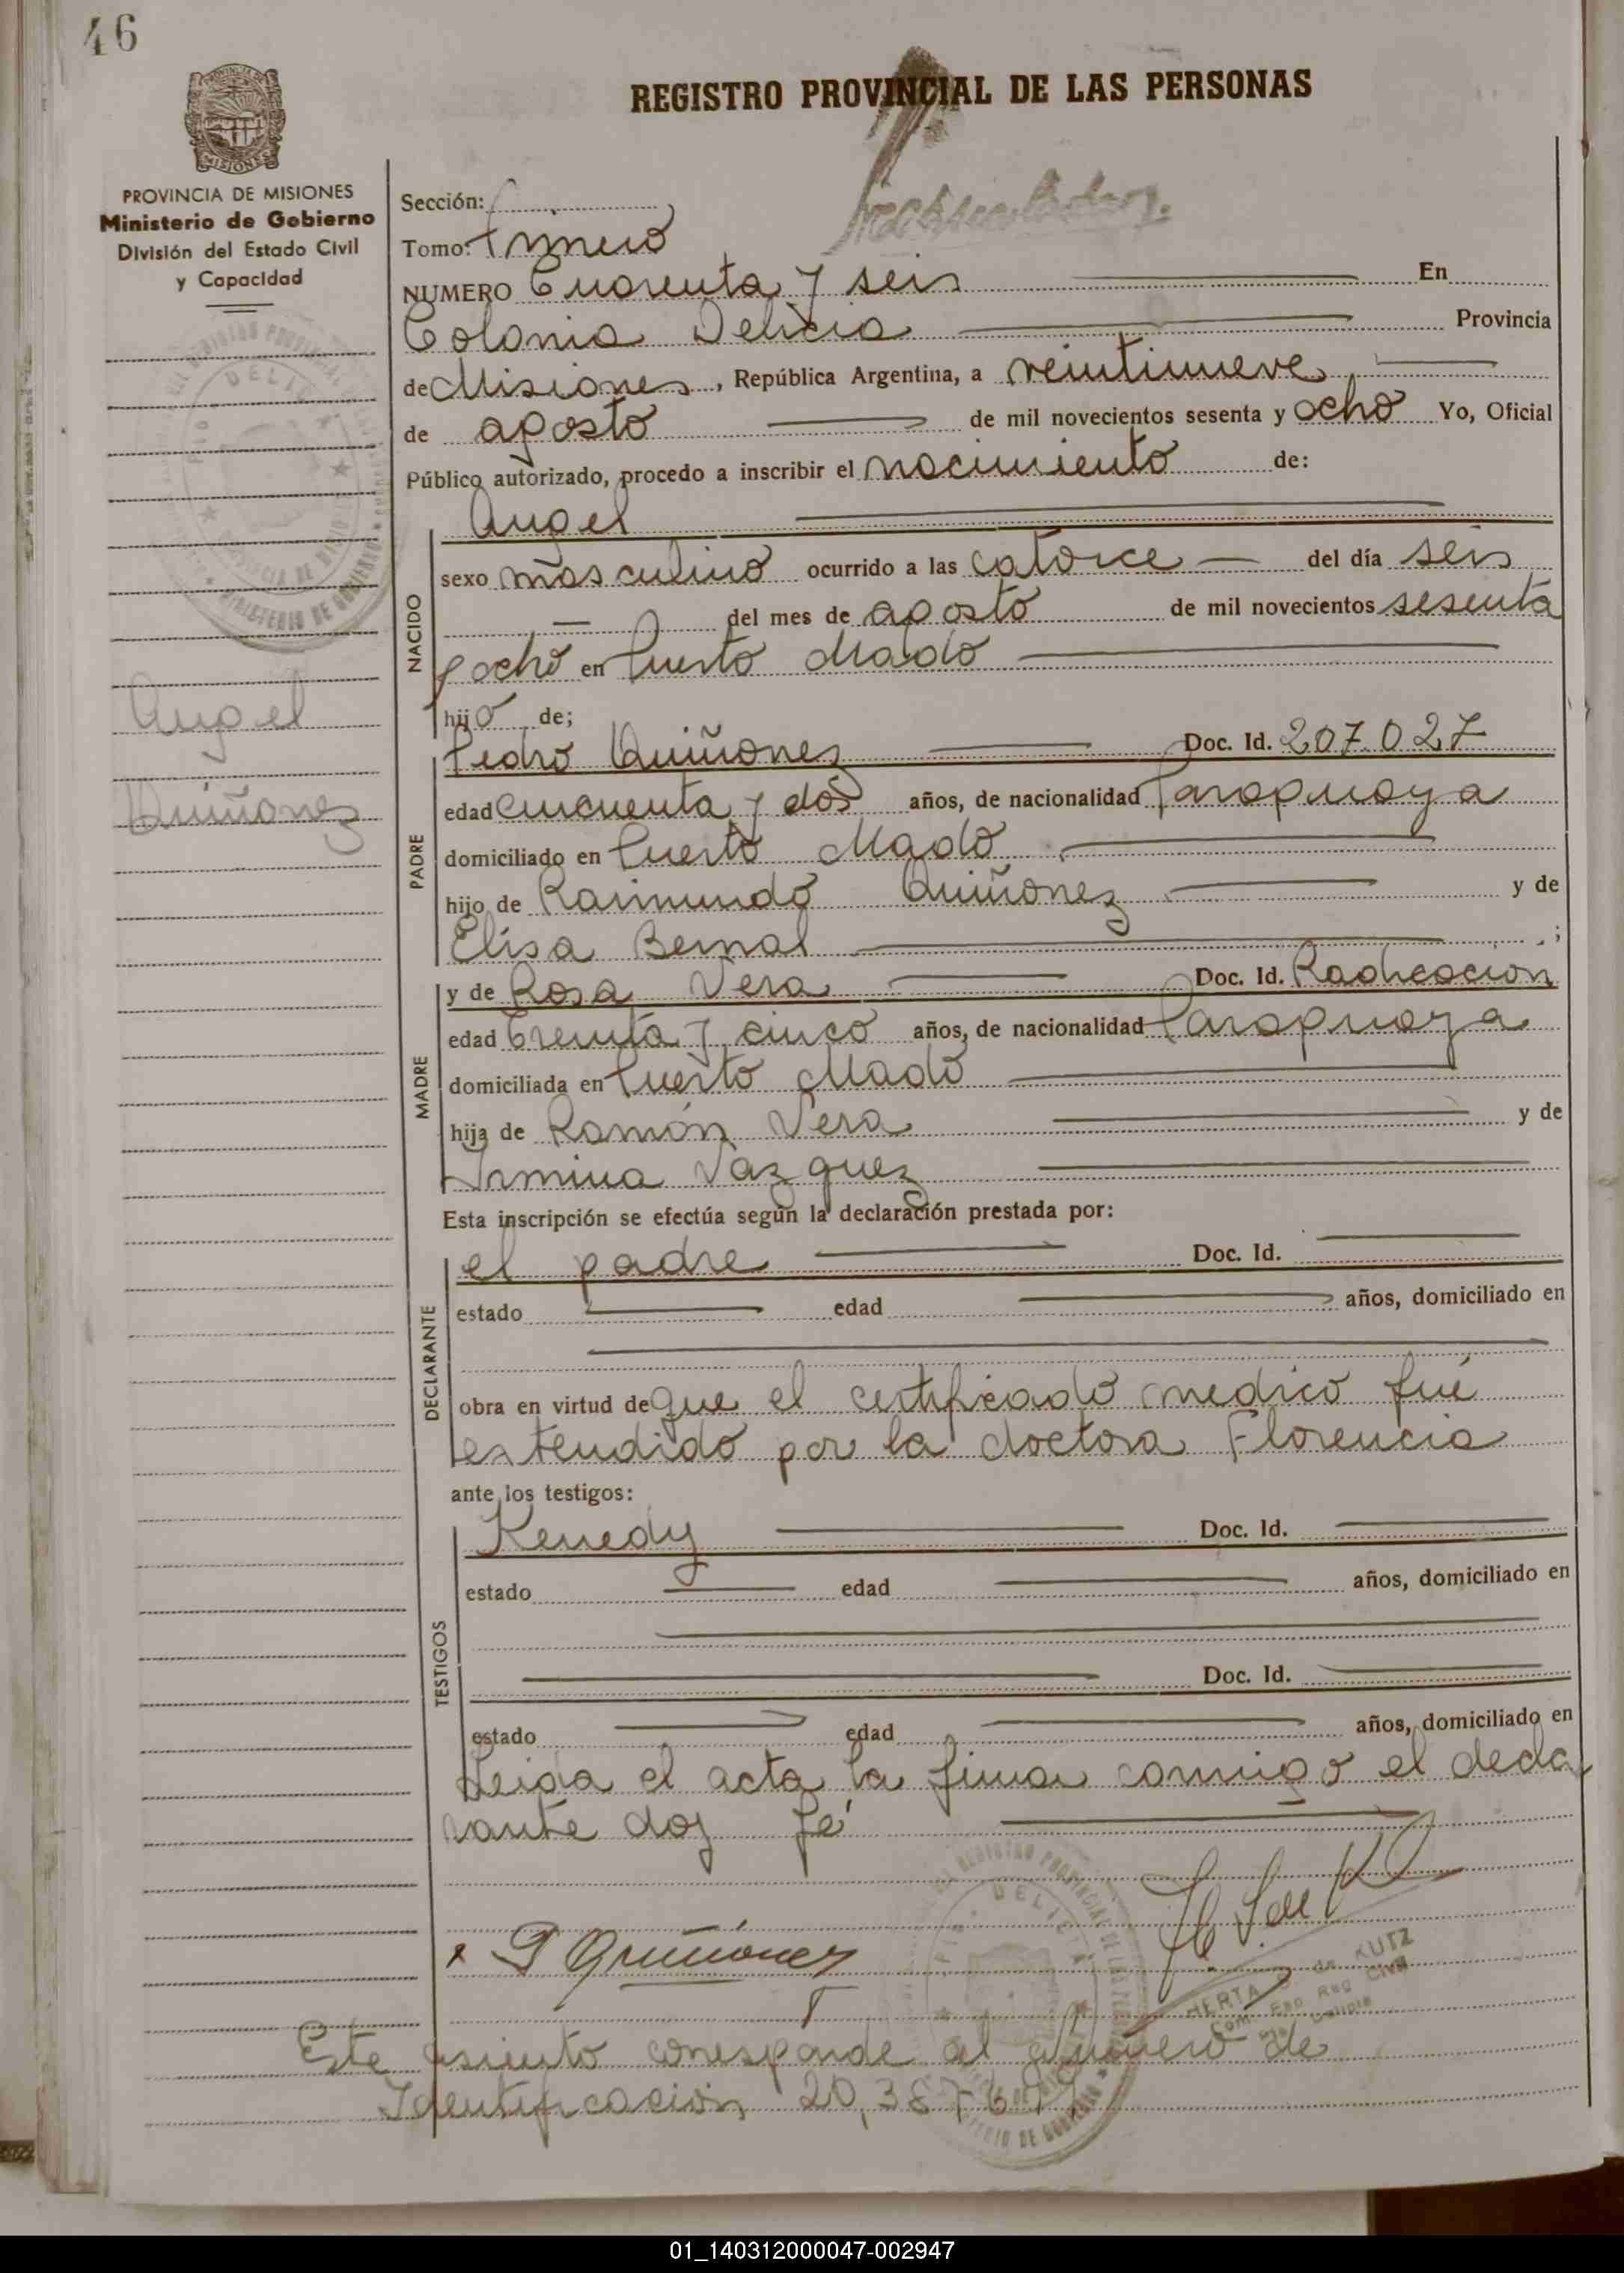 46
REGISTRO PROVINCIAL DE LAS PERSONAS
MISIONES
PROVINCIA DE MISIONES
Ministerio de Gobierno
División del Estado Civil
y Capacidad
Sección:
Tomo: Primero
NUMERO Cuarenta y seis En
Colonia Delicia Provincia
de Misiones, República Argentina, a veintinueve
de agosto de mil novecientos sesenta y ocho Yo, Oficial
Público autorizado, procedo a inscribir el nacimiento de:
Angel
NACIDO
sexo masculino ocurrido a las catorce del día seis
del mes de agosto de mil novecientos sesenta
y ocho en Puerto Mado
hijo de;
Angel
Quiñonez
PADRE
Pedro Quiñonez Doc. Id. 207.027
edad cincuenta y dos años, de nacionalidad Paraguaya
domiciliado en Puerto Mado
hijo de Raimundo Quiñonez y de
Elisa Bernal ;
MADRE
y de Rosa Vera Doc. Id. Radicacion
edad treinta y cinco años, de nacionalidad Paraguaya
domiciliada en Puerto Mado
hija de Ramón Vera y de
Irmina Vazquez
Esta inscripción se efectúa según la declaración prestada por:
DECLARANTE
el padre Doc. Id.
estado edad años, domiciliado en
obra en virtud de que el certificado medico fué
extendido por la doctora Florencia
ante los testigos:
TESTIGOS
Kenedy Doc. Id.
estado edad años, domiciliado en
Doc. Id.
estado edad años, domiciliado en
Leida el acta la firma conmigo el decla
rante doy fé
P Quiñonez
HERTA de KUTZ
Este asiento corresponde al Número de
Identificación 20,387
01_140312000047-002947